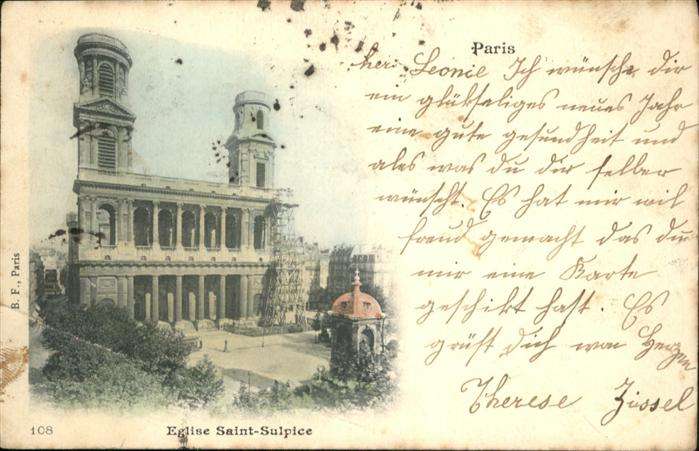 Paris
her. Leonie Ich wünsche dir
ein glükseliges neues Jahr
eine gute gesundheit und
ales was du dir selber
wünscht. Es hat mir vil
freud gemacht das du
mir eine Karte
geschikt hast. Es
grüst dich von Herzen
Therese Zissel
B. F., Paris
108
Eglise Saint-Sulpice